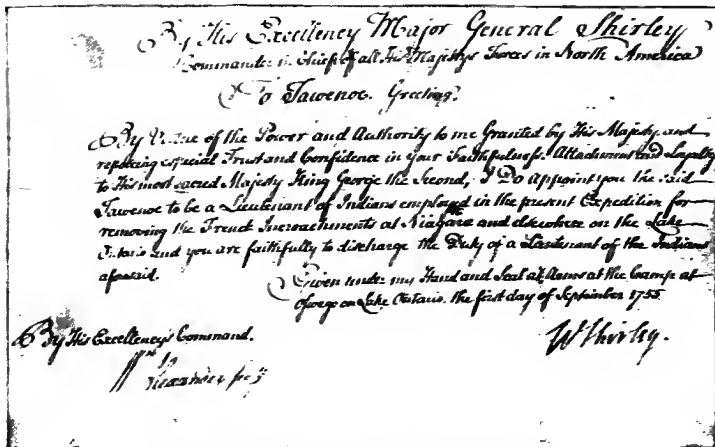 By His Excellency Major General Shirley
Commander in Chief of all His Majestys Forces in North America
To Tawenoe. Greeting.
By Virtue of the Power and Authority to me Granted by His Majesty and
reposing especial Trust and Confidence in your Faithfulness. Attachment and Loyalty
to His most sacred Majesty King George the Second; I Do Appoint you the said
Tawenoe to be a Lieutenant of Indians employed in the present Expedition for
removing the French Incroachments at Niagara and elsewhere on the Lake
Ontario and you are faithfully to discharge the Duty of a Lieutenant of the Indians
aforesaid.
Given under my Hand and Seal at Arms at the Camp at
Oswego on Lake Ontario. the first day of September 1755
By His Excellency's Command.
W Shirley.
Wm Alexander Secy